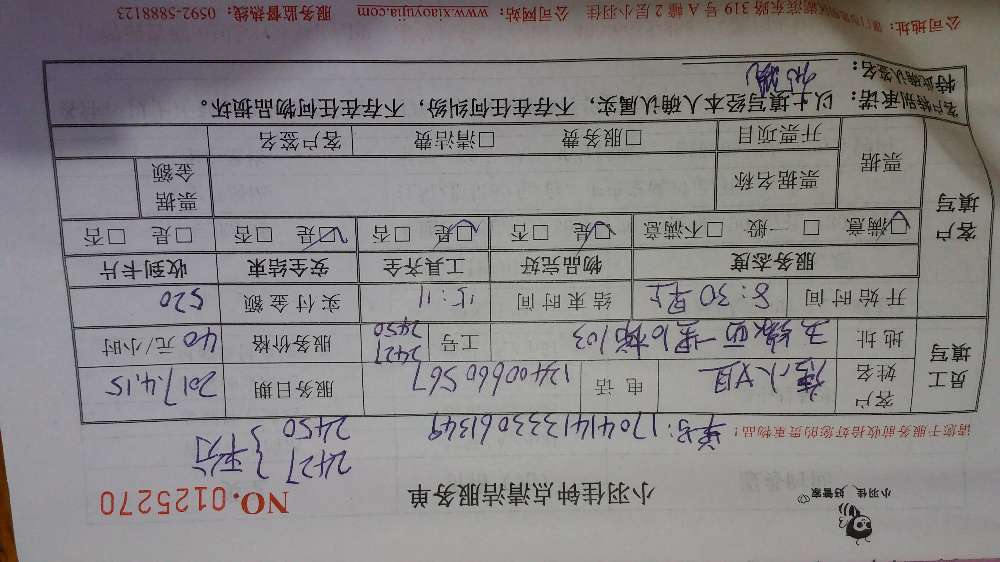 小羽佳 好管家
小羽佳钟点清洁服务单
NO.0125270
2427 }平方
2450
请您于服务前收拾好您的贵重物品！
单号：1704141333061349
员工填写
客户姓名 小姐 电话 13400660567 服务日期 2017.4.15
地址 一里10梯103 工号 2427 2450 服务价格 40 元/小时
开始时间 8：30早上 结束时间 15：11 实付金额 520
客户填写
服务态度 物品完好 工具齐全 安全结束 收到卡片
☑满意 □一般 □不满意 ☑是 □否 ☑是 □否 ☑是 □否 □是 □否
票据 票据名称 票据金额
开票项目 □服务费 □清洁费 客户签名
客户特别承诺： 以上填写经本人确认属实，不存在任何纠纷，不存在任何物品损坏。
特此确认签名：
公司地址：厦门市思明区湖滨东路319号A幢2层小羽佳 公司网站：www.xiaoyujia.com 服务监督热线：0592-5888123